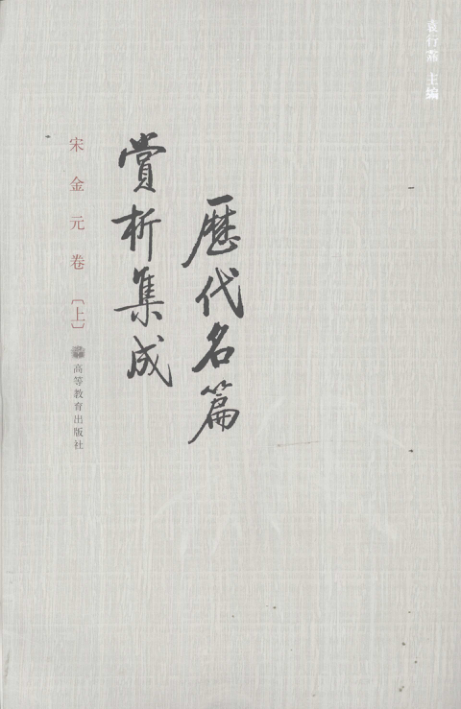 袁行霈 主编
歷代名篇
赏析集成
宋金元卷〔上〕
高等教育出版社